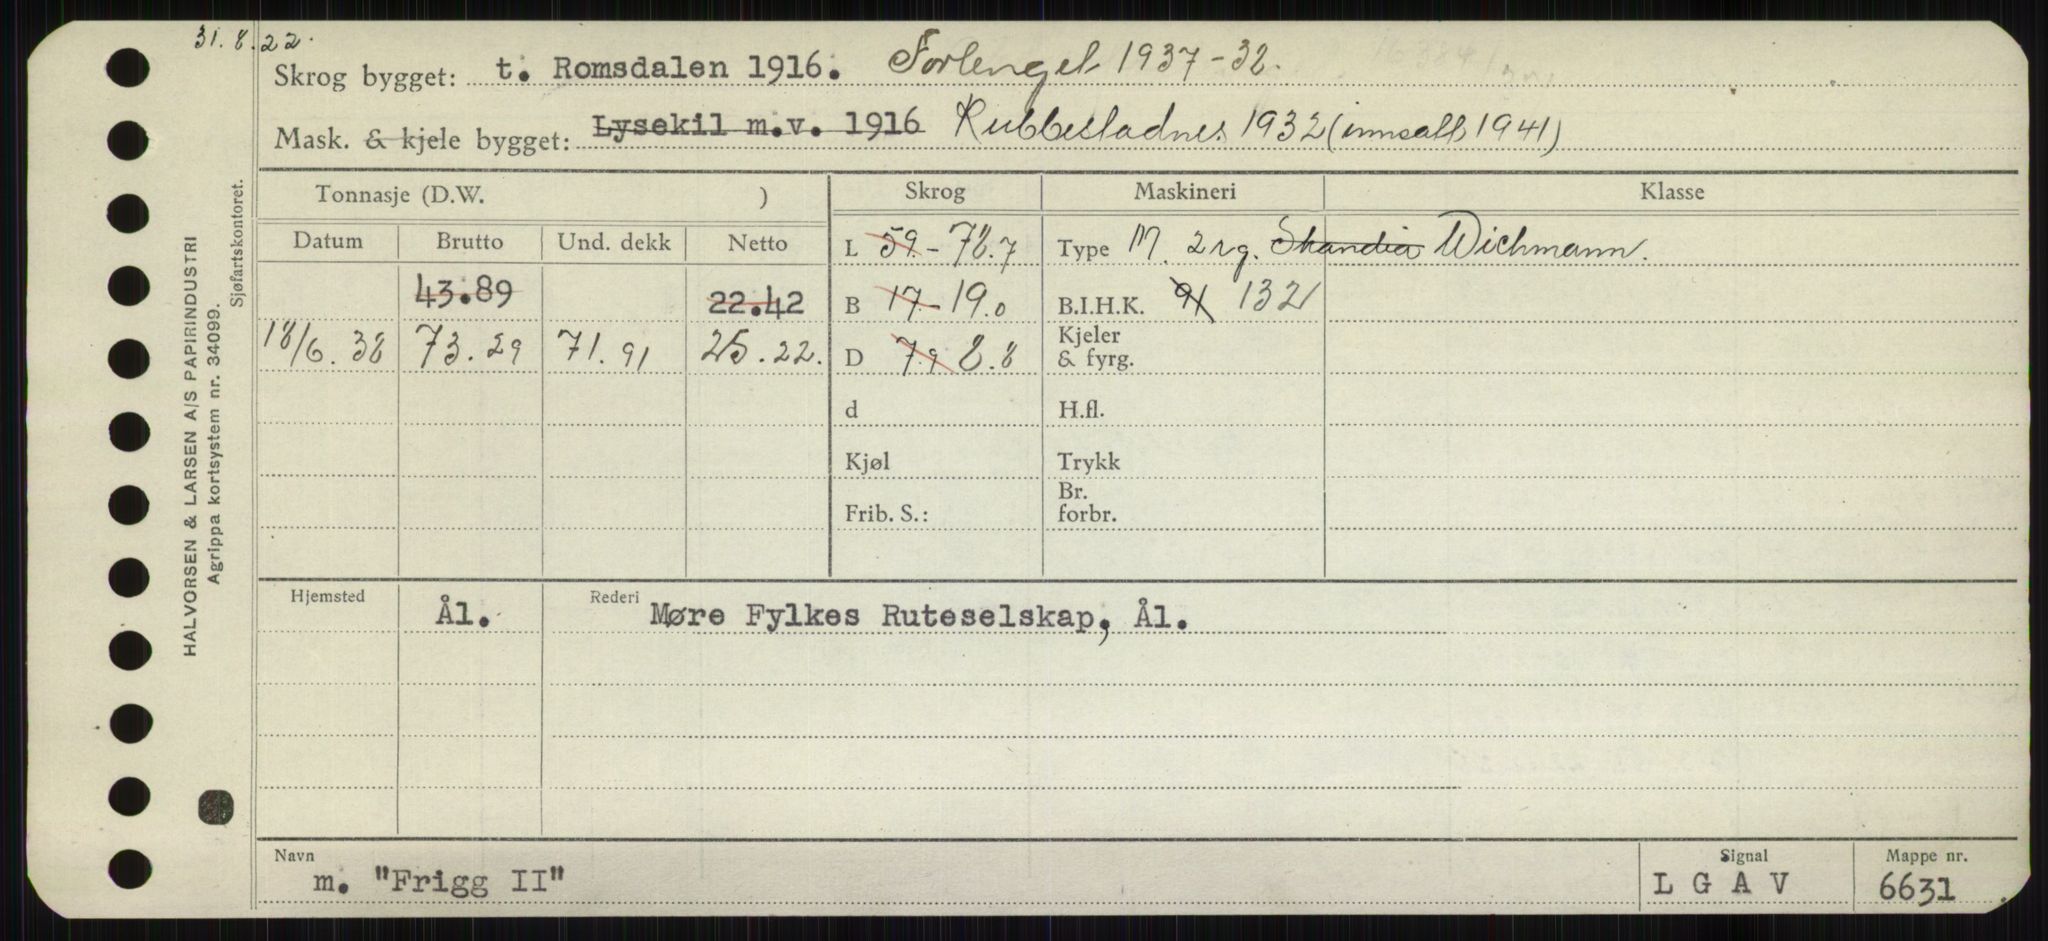 31.8.22.
Skrog bygget: t. Romsdalen 1916. Forlenget 1937-38.
Mask. & kjele bygget: Lysekil m.v. 1916 Rubbestadnes 1932 (innsatt 1941)
Tonnasje (D.W. ) Skrog Maskineri Klasse
Datum Brutto Und. dekk Netto L 59.- 78.7 Type M. 2 syl. Skandia Wichmann.
43.89 22.42 B 17.- 19.0 B.I.H.K. 91 132
18/6.38 73.29 71.91 25.22. D 7.9 8.8 Kjeler & fyrg.
d H.fl.
Kjøl Trykk
Frib. S.: Br. forbr.
Hjemsted Ål. Rederi Møre Fylkes Ruteselskap, Ål.
Navn Signal Mappe nr.
m. "Frigg II" L G A V 6631
HALVORSEN & LARSEN A/S PAPIRINDUSTRI
Agrippa kortsystem nr. 34099.
Sjøfartskontoret.